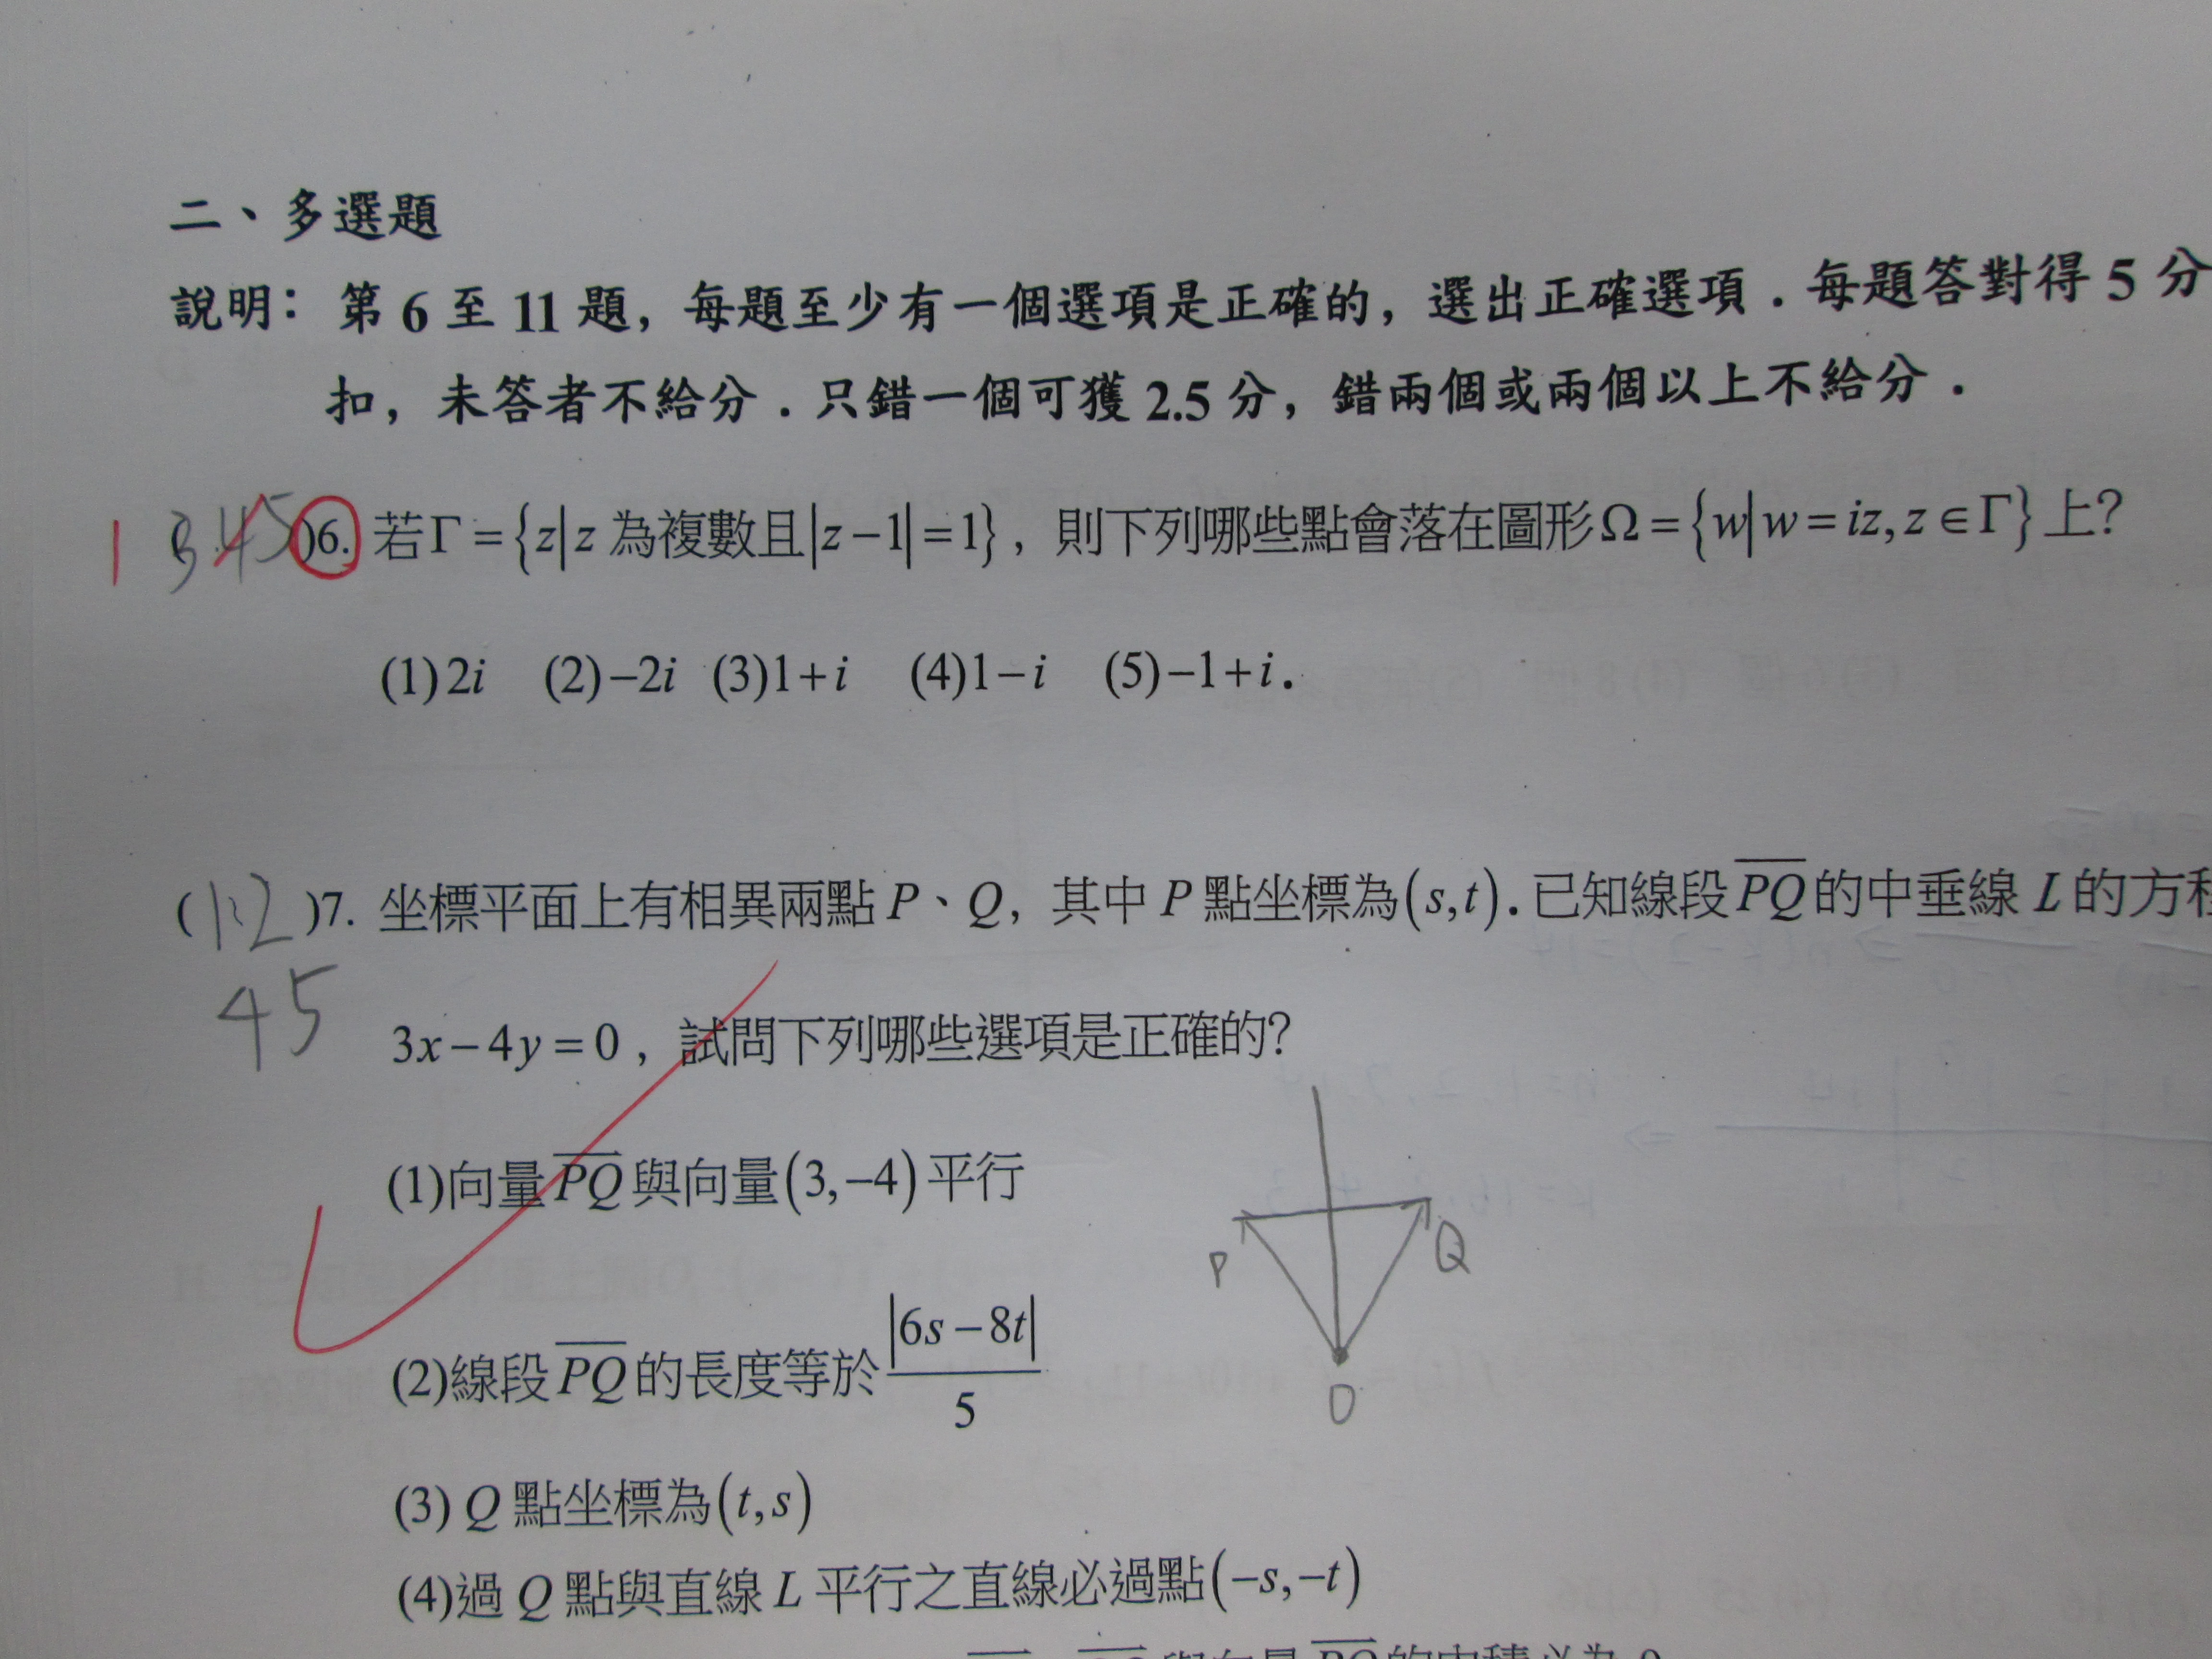 二、多選題
說明：第 6 至 11 題，每題至少有一個選項是正確的，選出正確選項．每題答對得 5 分
扣，未答者不給分．只錯一個可獲 2.5 分，錯兩個或兩個以上不給分．
1 3.45 )6. 若Γ={z|z 為複數且|z−1|=1}，則下列哪些點會落在圖形Ω={w|w=iz, z∈Γ}上？
(1)2i (2)−2i (3)1+i (4)1−i (5)−1+i．
(1.2 )7. 坐標平面上有相異兩點 P、Q，其中 P 點坐標為(s,t)．已知線段PQ的中垂線 L 的方程
45
3x−4y=0，試問下列哪些選項是正確的？
(1)向量PQ與向量(3,−4)平行
(2)線段PQ的長度等於|6s−8t|/5
P
Q
O
(3) Q 點坐標為(t,s)
(4)過 Q 點與直線 L 平行之直線必過點(−s,−t)